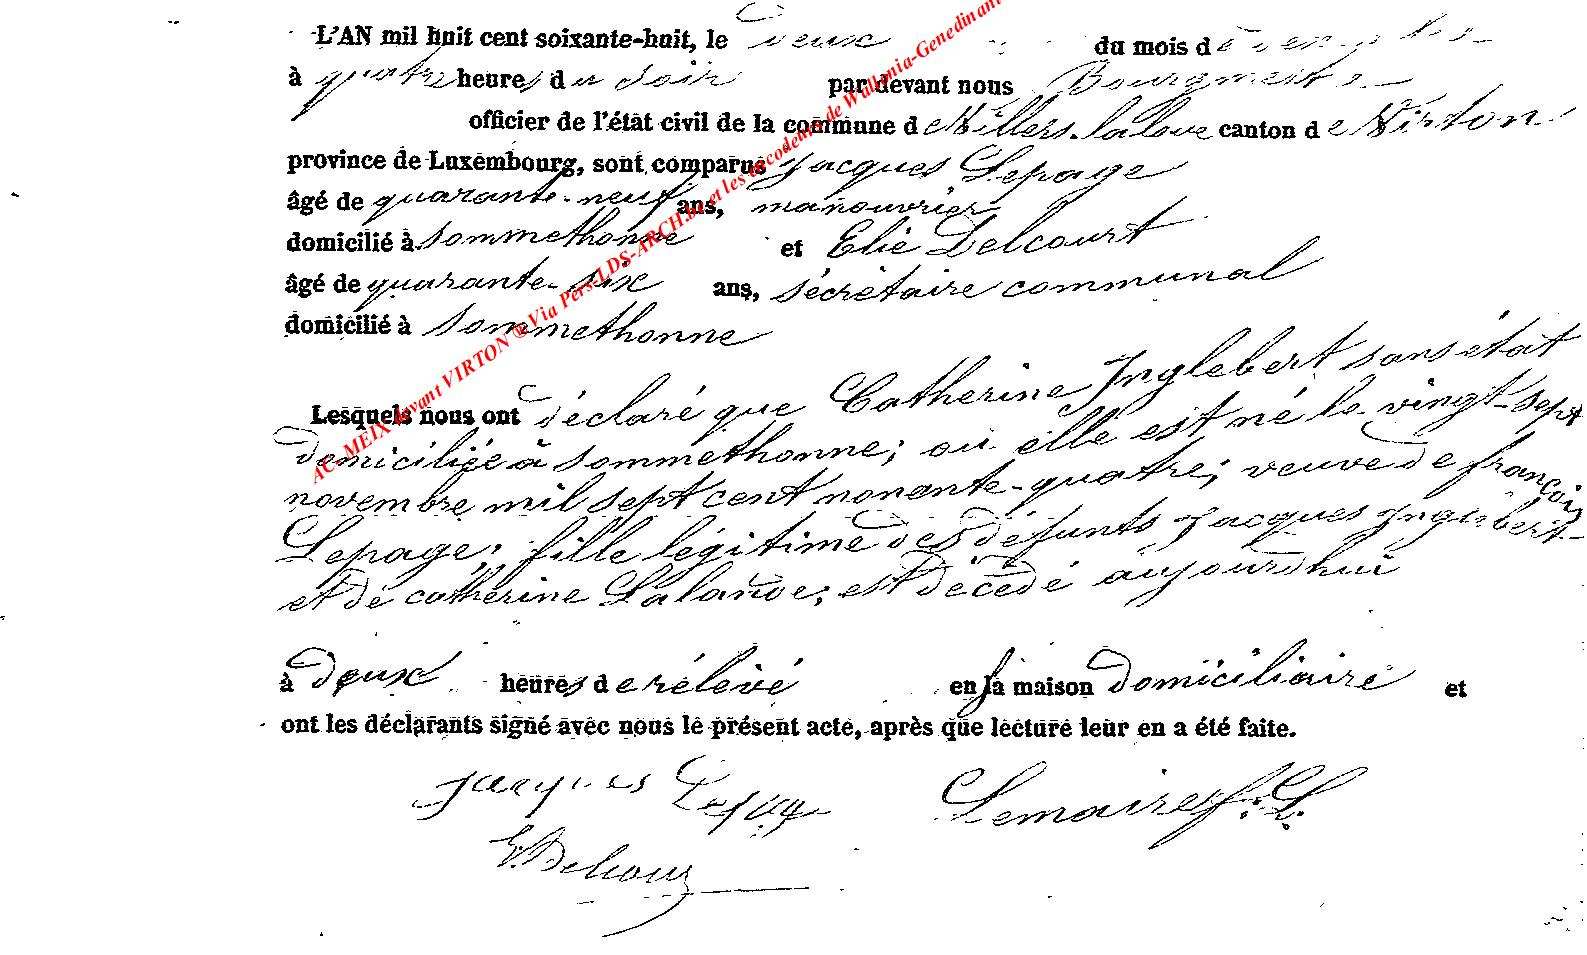 L'AN mil huit cent soixante-huit, le deux du mois de
à quatre heures du soir par devant nous Bourgmestre
officier de l'état civil de la commune de Villers-laloue canton de Virton
province de Luxembourg, sont comparus Jacques Lepage
âgé de quarante-neuf ans, manouvrier
domicilié à Sommethonne et Elie Delcourt
âgé de quarante-six ans, sécrétaire communal
domicilié à Sommethonne
Lesquels nous ont déclaré que Catherine Inglebert sans état
domiciliée à Sommethonne; où elle est né le vingt-sept
novembre mil sept cent nonante-quatre; veuve de françois
Lepage; fille légitime des défunts Jacques Inglebert
et de catherine Lalande; est décédé aujourd'hui
à deux heures de rélévé en la maison domiciliaire et
ont les déclarants signé avec nous le présent acte, après que lecture leur en a été faite.
Jacques Lepage Lemaire f. L.
E. Delcour
AC. MEIX devant VIRTON ® Via Pers-LDS-ARCH.be et les encodeurs de Wallonia-Genedinant